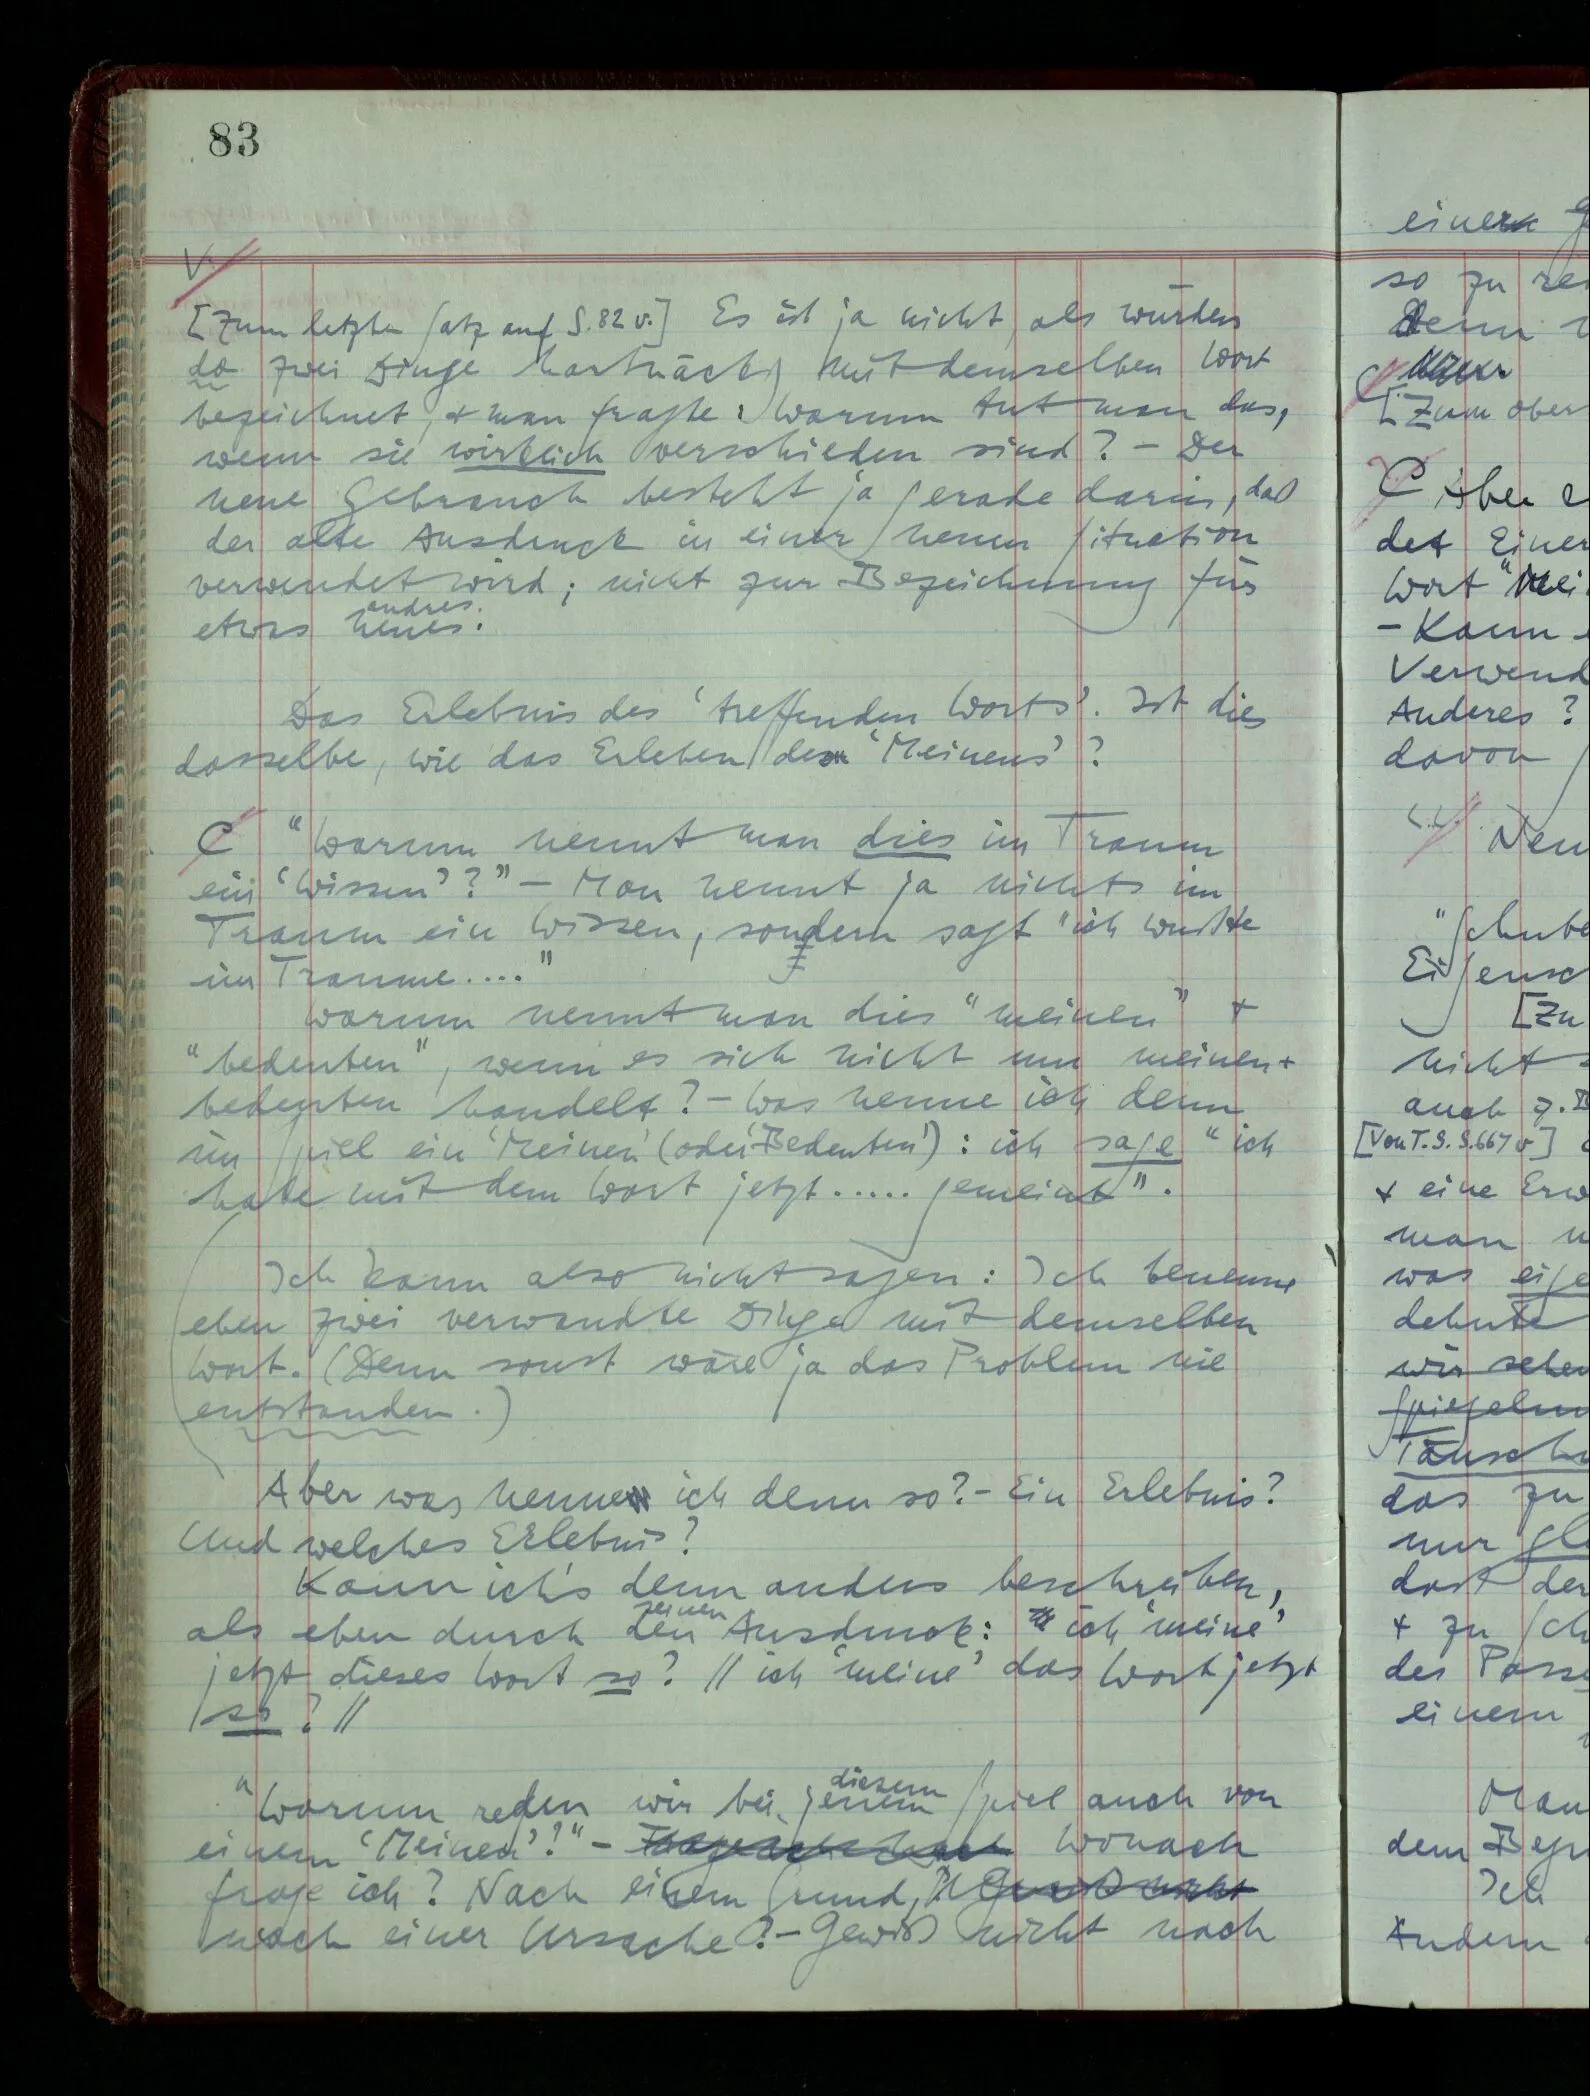 83
V.
[Zum letzten Satz auf S. 82 v.] Es ist ja nicht, als würden
da zwei Dinge hartnäckig mit demselben Wort
bezeichnet, & man fragte: Warum tut man das,
wenn sie wirklich verschieden sind? – Der
neue Gebrauch besteht ja gerade darin, daß
der alte Ausdruck in einer neuen Situation
verwendet wird; nicht zur Bezeichnung für
andres.
etwas neues.
Das Erlebnis des ‘treffenden Worts’. Ist dies
dasselbe, wie das Erleben des ‘Meinens’?
C “Warum nennt man dies im Traum
ein ‘Wissen’?” – Man nennt ja nichts im
Traum ein Wissen, sondern sagt “ich wußte
im Traume....”
Warum nennt man dies “meinen” &
“bedeuten”, wenn es sich nicht um meinen &
bedeuten handelt? – Was nenne ich denn
im Spiel ein ‘Meinen’ (oder ‘Bedeuten’): ich sage “ich
habe mit dem Wort jetzt ..... gemeint”.
Ich kann also nicht sagen: Ich benenne
eben zwei verwandte Dinge mit demselben
Wort. (Denn sonst wäre ja das Problem nie
entstanden.)
Aber was nenne ich denn so? – Ein Erlebnis?
Und welches Erlebnis?
Kann ich's denn anders beschreiben,
seinen
als eben durch den Ausdruck: ich ‘meine’
jetzt dieses Wort so? // ich ‘meine’ das Wort jetzt
so? //
diesem
“Warum reden wir bei jenem Spiel auch von
einem ‘Meinen’?” – Wonach
frage ich? Nach einem Grund,
nach einer Ursache? – Gewiß nicht nach
einer
so zu
Denn
[Zum ober
C Aber
det Einer
Wort “Mei
– Kann
Verwend
Anderes?
davon
Nen
“Schube
Eigensc
[Zu
nicht
auch z.B
[Von T.S. S. 667 v]
& eine Erw
man
was eige
dehnte
wir sehen
Spiegelun
Täuschu
das zu
nur gl
dort der
& zu Sch
des Passe
einem
Man
dem Begr
Ich
Andern